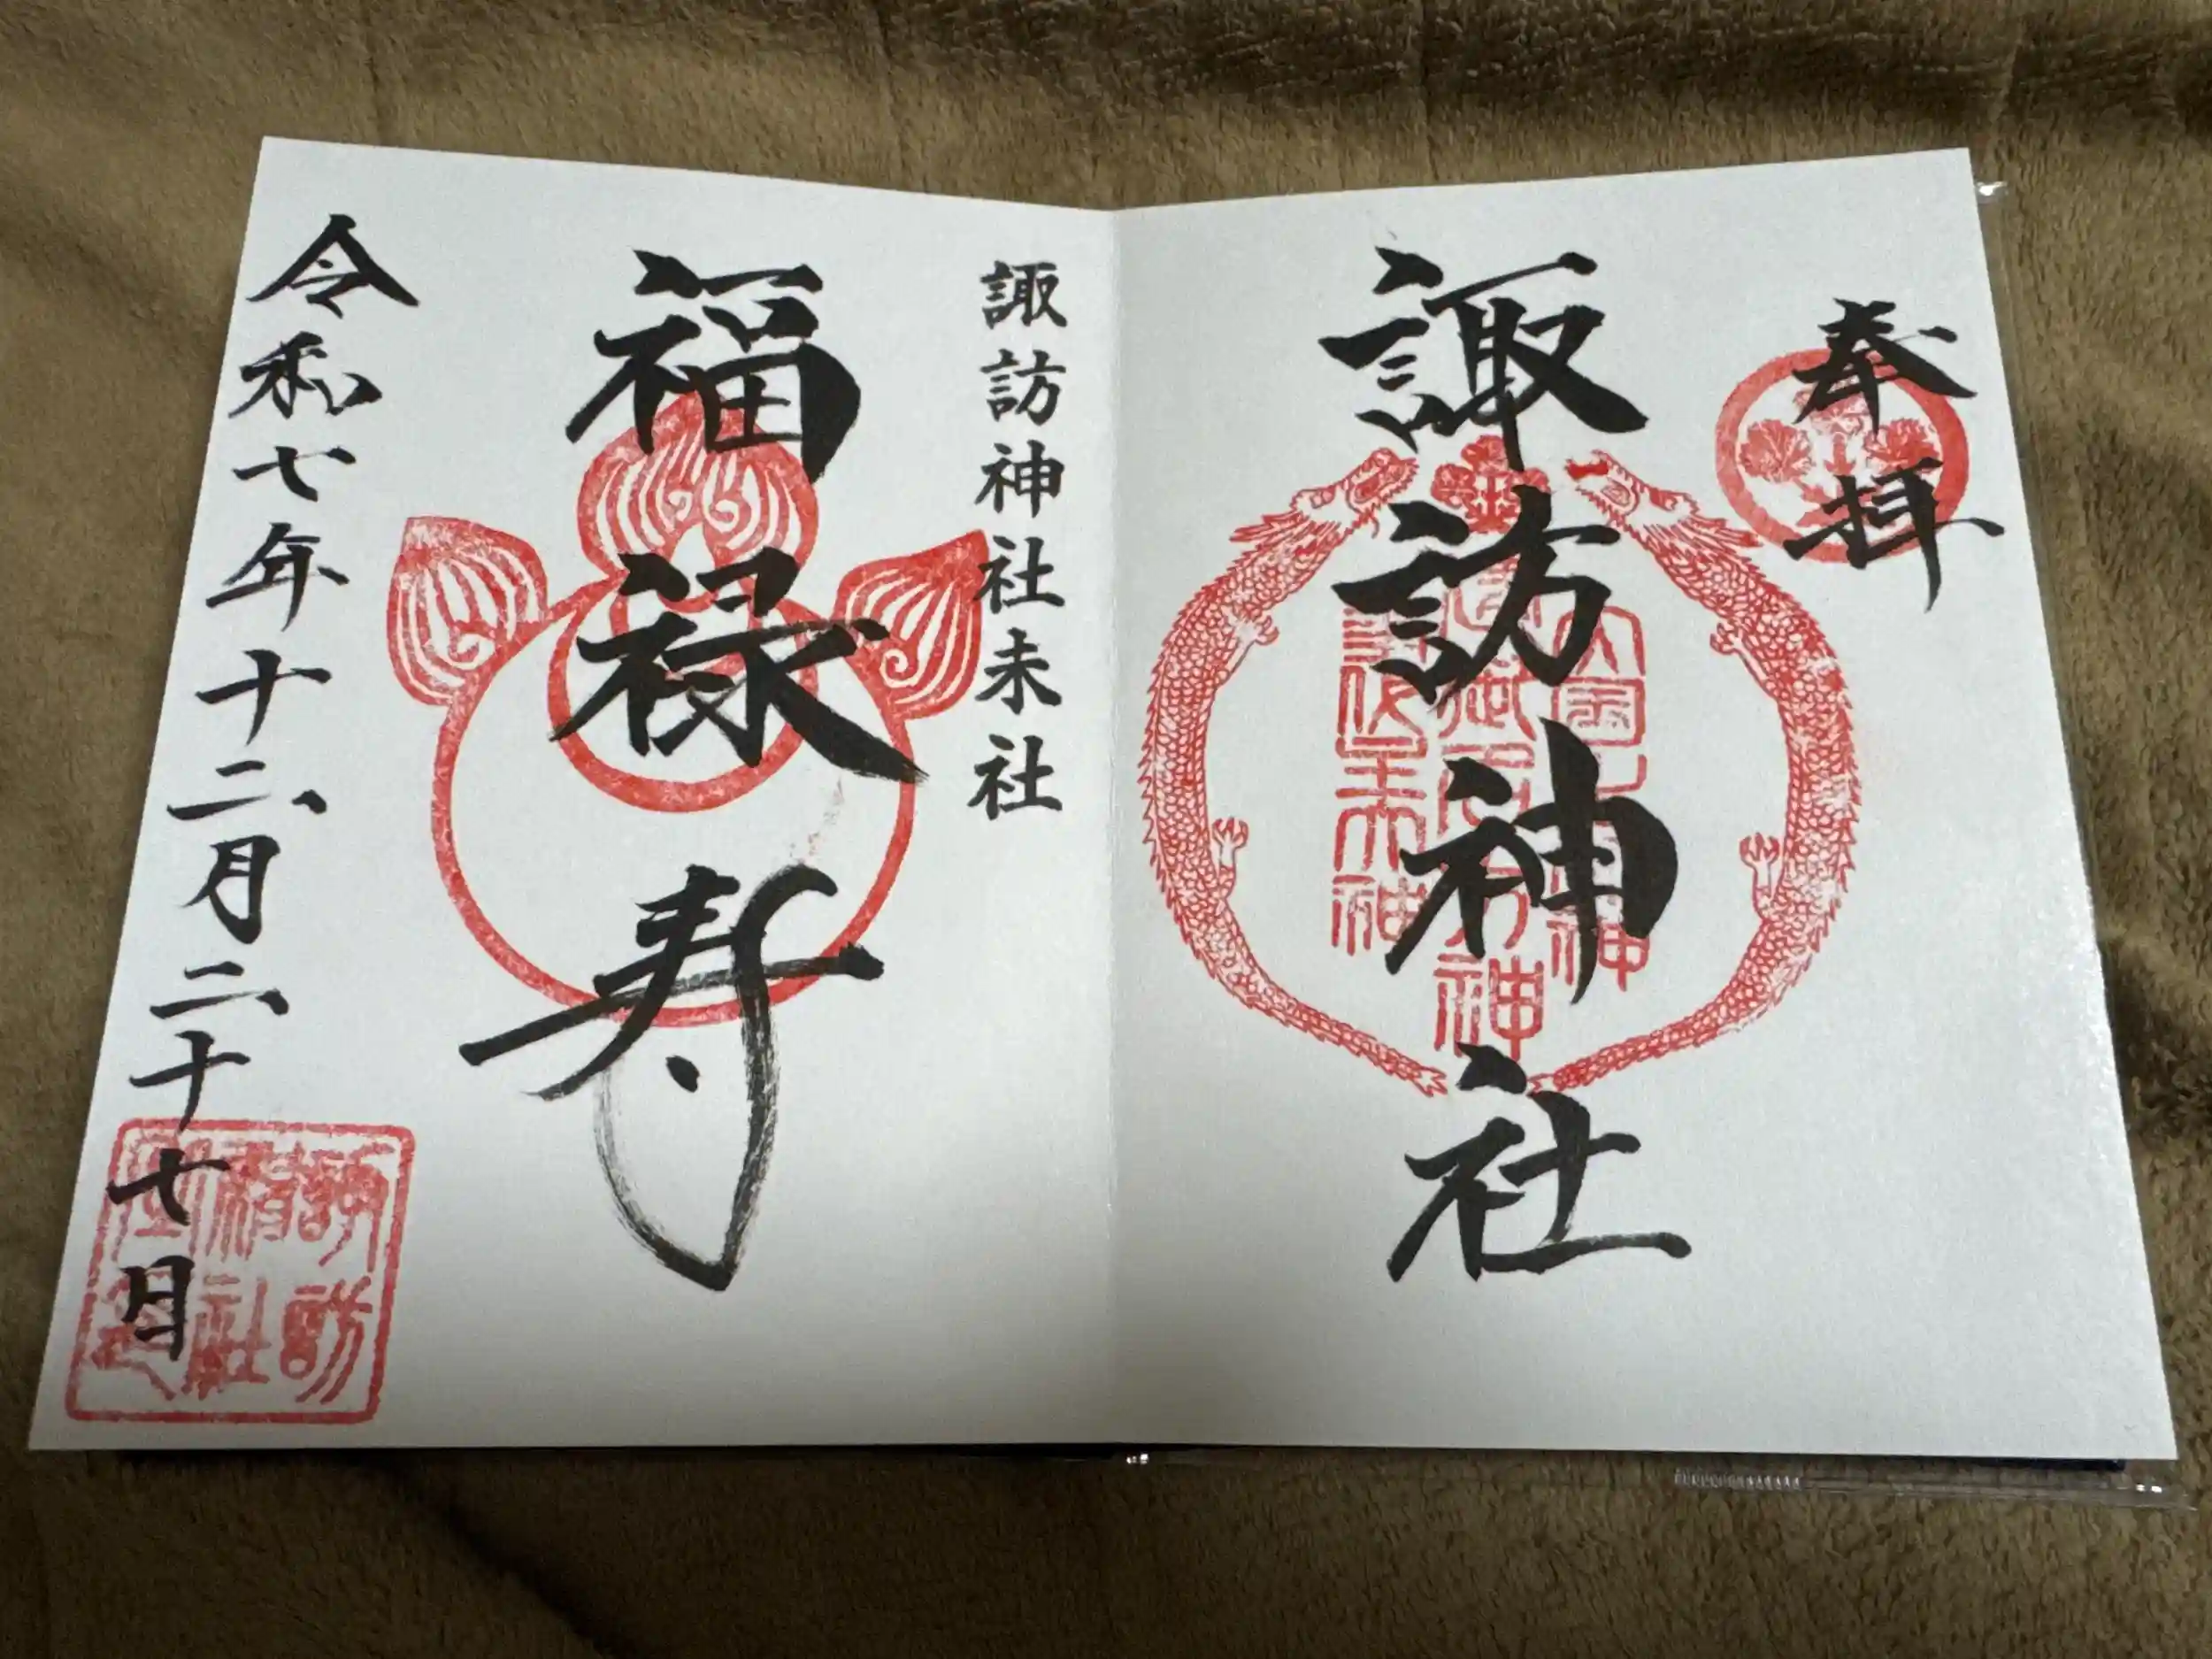 奉拝
諏訪神社
諏訪神社末社
福禄寿
令和七年十二月二十七日
諏訪
神社